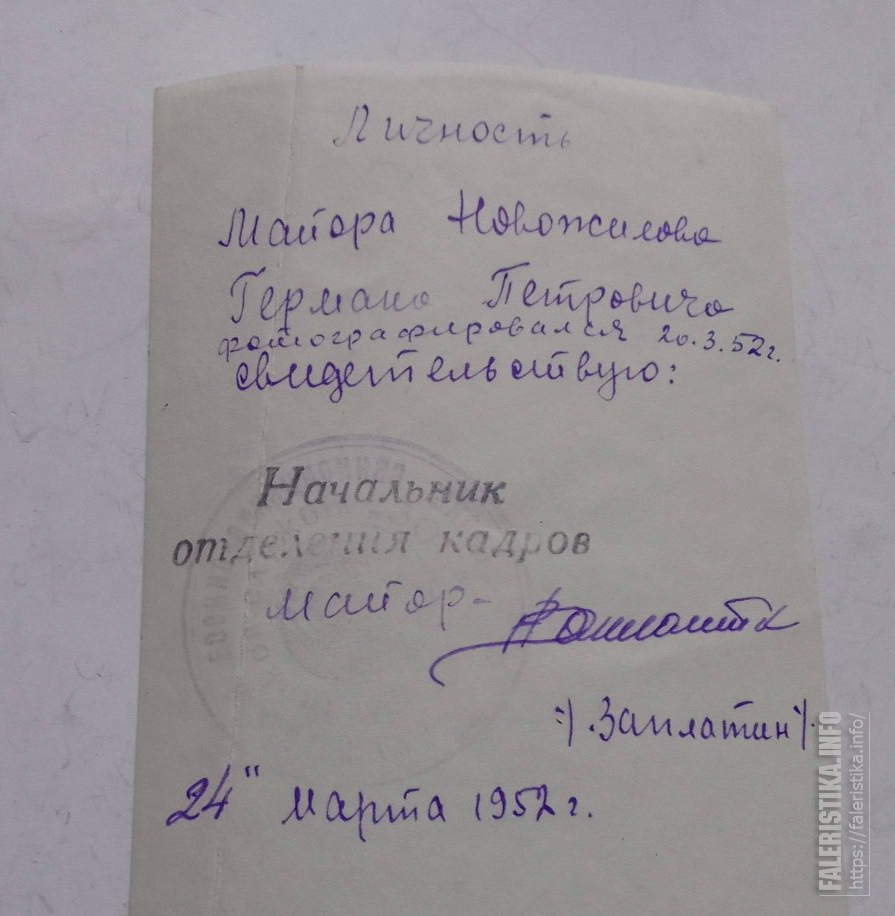 Личность
Майора Новожилова
Германа Петровича
фотографировался 20.3.52г.
свидетельствую:
Начальник
отделения кадров
Майор-
:/.Заплатин/.
24" марта 1952г.
FALERISTIKA.INFO
https://faleristika.info/